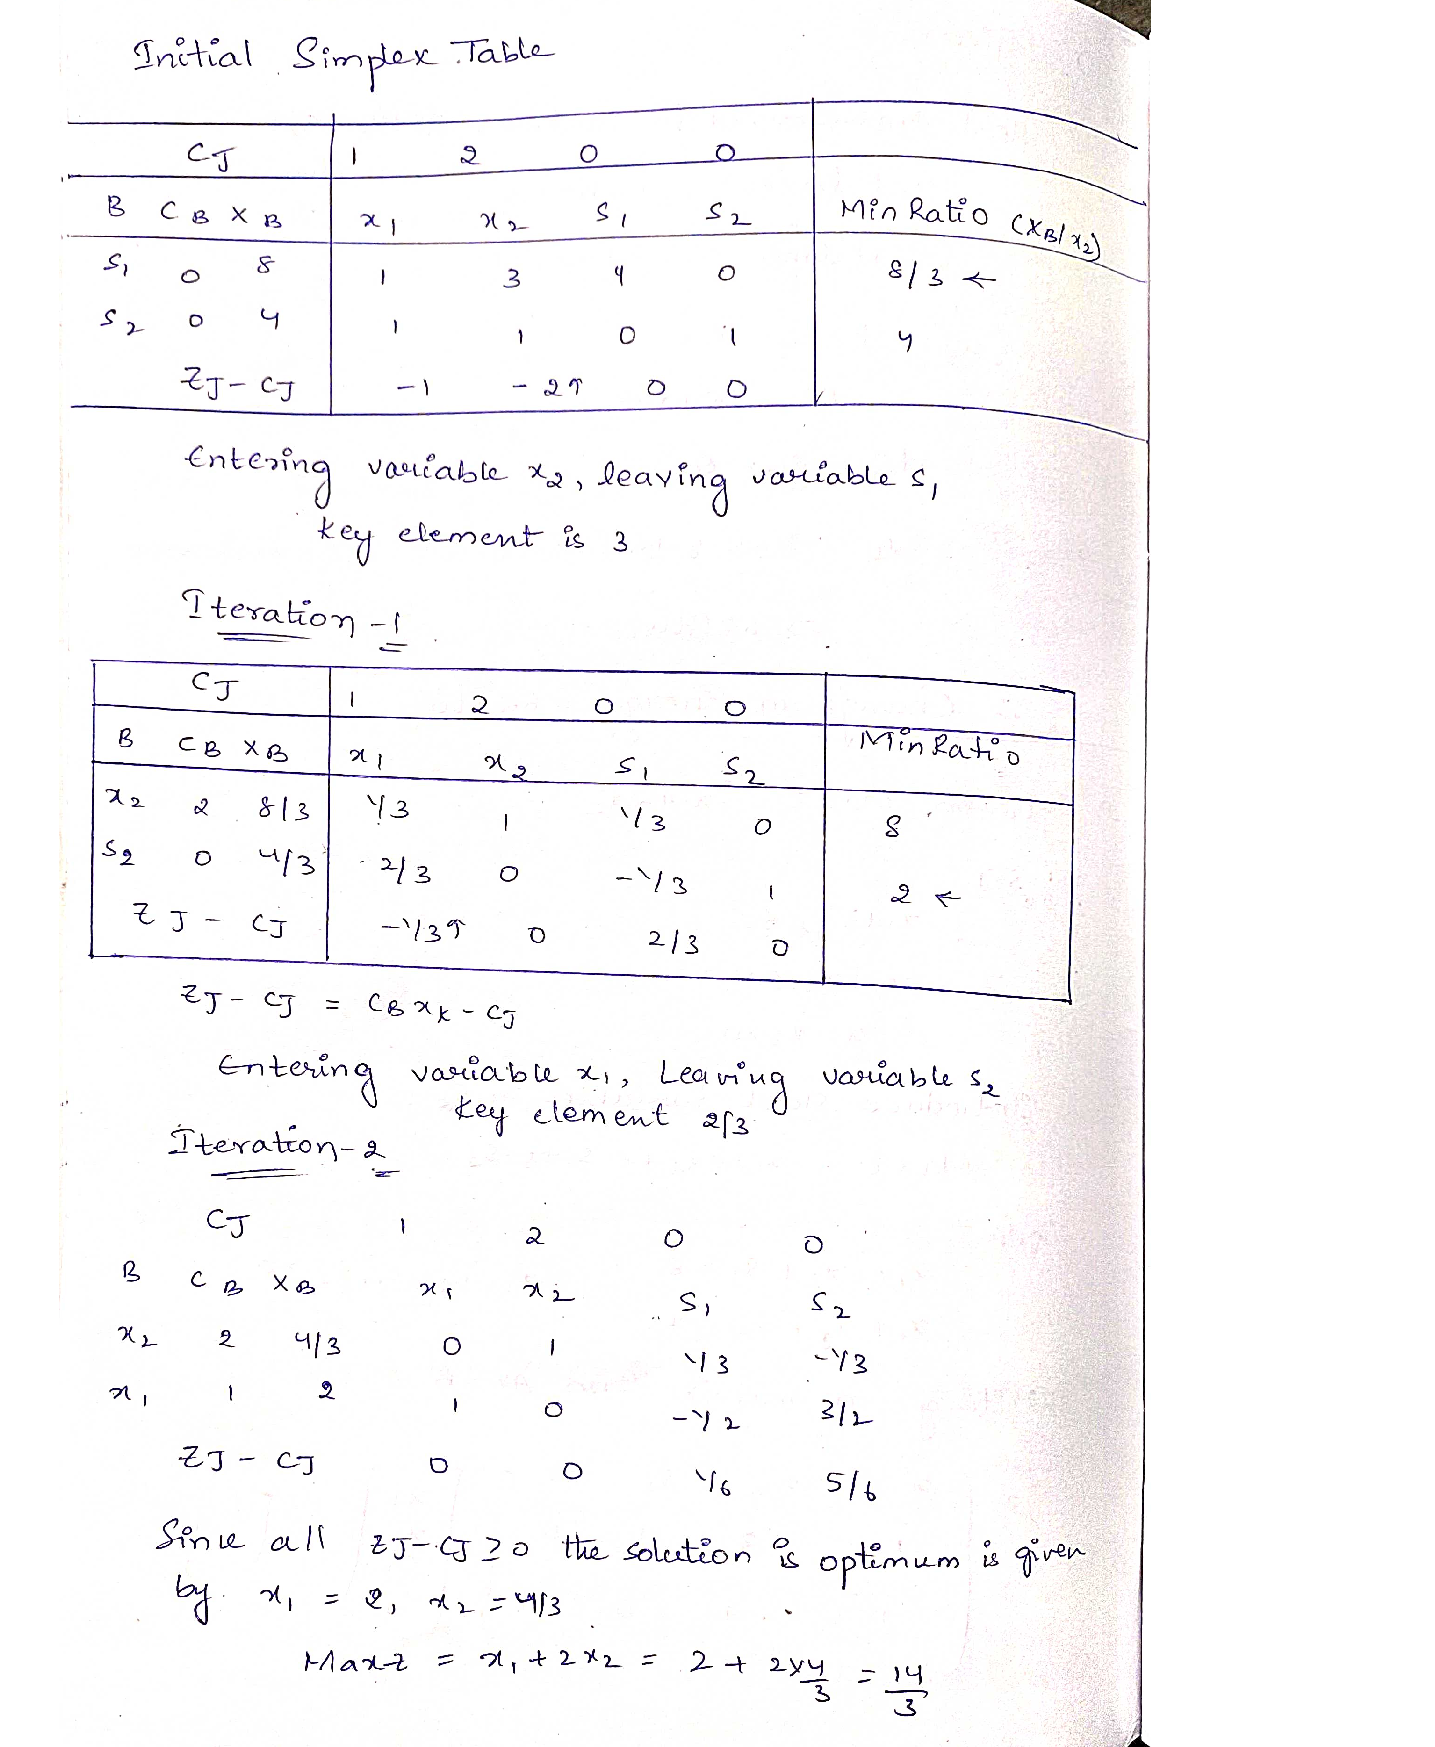 Initial Simplex Table
CJ 1 2 0 0
B CB XB x1 x2 S1 S2 Min Ratio (XB/x2)
S1 0 8 1 3 4 0 8/3 ←
S2 0 4 1 1 0 1 4
ZJ - CJ -1 -2↑ 0 0
Entering variable x2, leaving variable S1
key element is 3
Iteration -1
CJ 1 2 0 0
B CB XB x1 x2 S1 S2 Min Ratio
x2 2 8/3 1/3 1 1/3 0 8
S2 0 4/3 2/3 0 -1/3 1 2 ←
ZJ - CJ -1/3↑ 0 2/3 0
ZJ - CJ = CB xK - CJ
Entering variable x1, Leaving variable S2
Key element 2/3
Iteration-2
CJ 1 2 0 0
B CB XB x1 x2 S1 S2
x2 2 4/3 0 1 1/3 -1/3
x1 1 2 1 0 -1/2 3/2
ZJ - CJ 0 0 1/6 5/6
Since all ZJ-CJ ≥ 0 the solution is optimum is given
by x1 = 2, x2 = 4/3
Max Z = x1 + 2x2 = 2 + 2×4/3 = 14/3